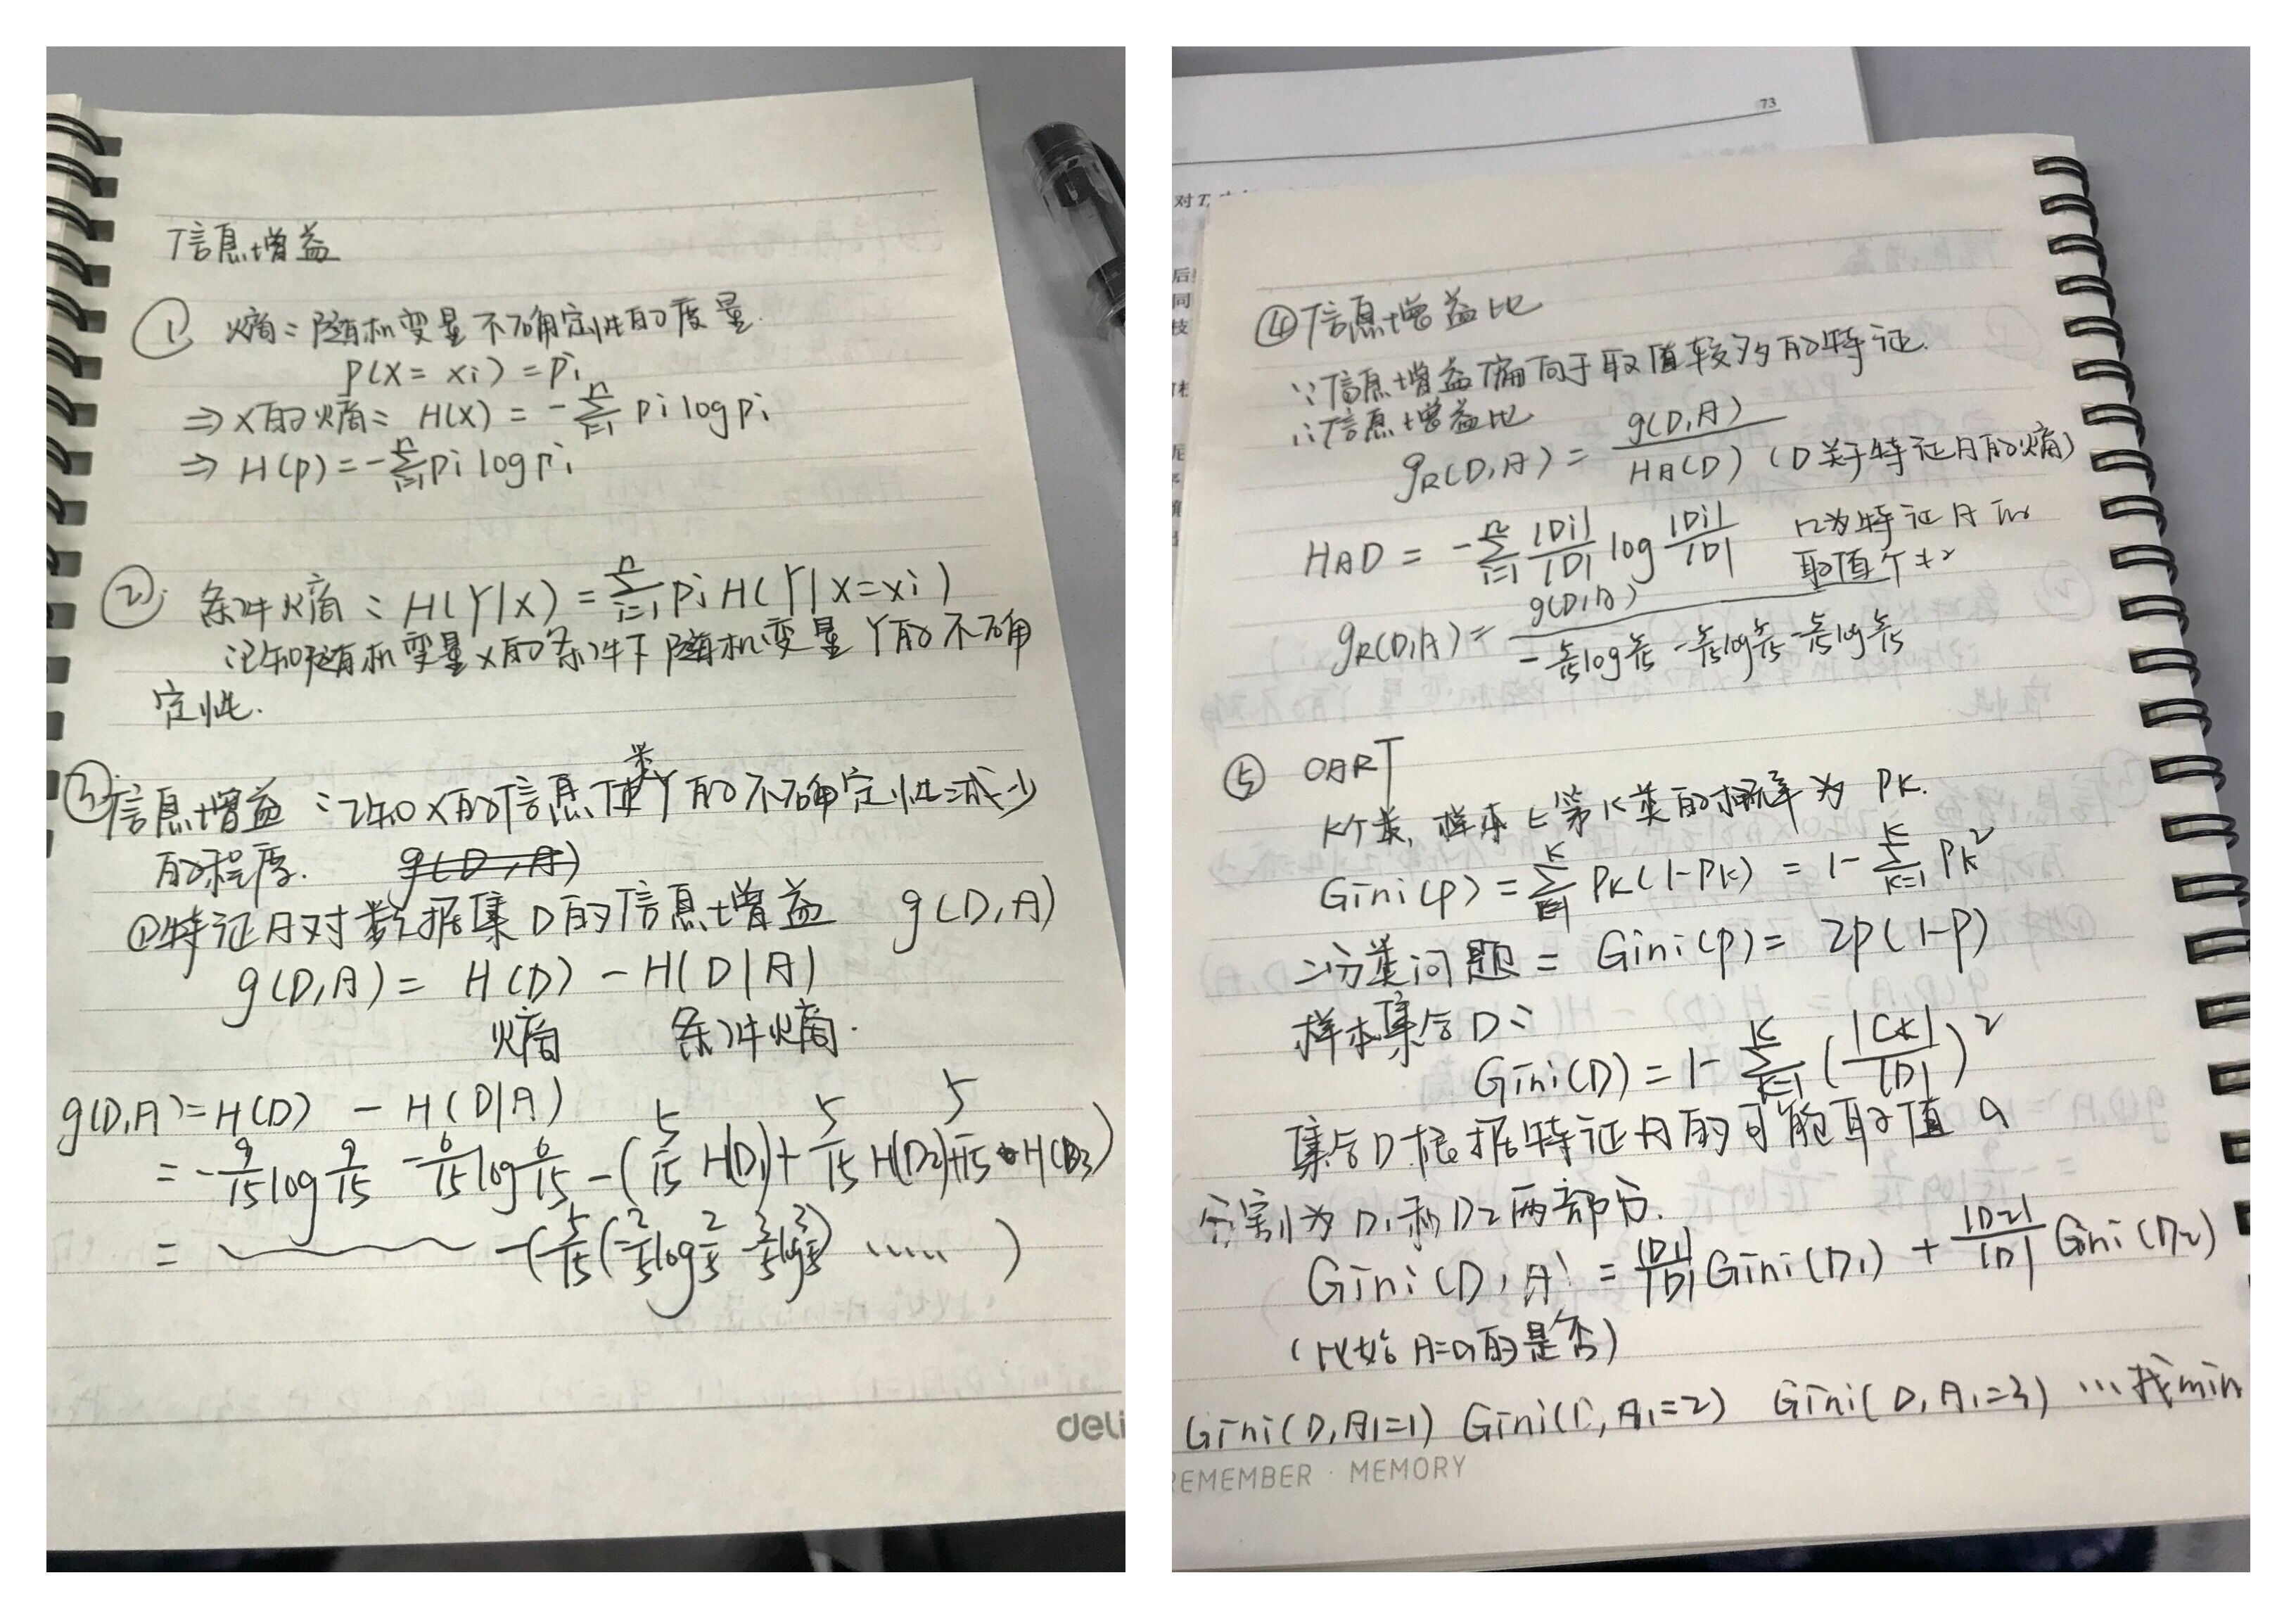 信息增益
① 熵：随机变量不确定性的度量.
P(X=xi)=Pi
⇒ X的熵： H(X) = -∑_{i=1}^{n} pi log pi
⇒ H(p) = -∑_{i=1}^{n} pi log pi
② 条件熵：H(Y|X) = ∑_{i=1}^{n} pi H(Y|X=xi)
已知随机变量X的条件下随机变量Y的不确
定性.
③ 信息增益：已知X的信息使类Y的不确定性减少
的程度. g(D,A)
①特征A对数据集D的信息增益 g(D,A)
g(D,A) = H(D) - H(D|A)
熵 条件熵.
g(D,A) = H(D) - H(D|A)
= -9/15 log 9/15 -6/15 log 6/15 - (5/15 H(D1) + 5/15 H(D2) + 5/15 H(D3))
= ~ -(5/15(-2/5 log 2/5 -3/5 log 3/5) ……)
deli
73
对T
后
同
枝
④信息增益比
∵信息增益偏向于取值较多的特征.
∴信息增益比
gR(D,A) = g(D,A)/HA(D) (D关于特征A的熵)
HAD = -∑_{i=1}^{n} |Di|/|D| log |Di|/|D| n为特征A的
取值个数
gR(D,A) = g(D,A)/(-5/15 log 5/15 -5/15 log 5/15 -5/15 log 5/15)
⑤ CART
K个类, 样本∈第K类的概率为 PK.
Gini(p) = ∑_{k=1}^{K} PK(1-PK) = 1-∑_{k=1}^{K} PK²
二分类问题： Gini(p) = 2p(1-p)
样本集合D：
Gini(D) = 1-∑_{k=1}^{K} (|Ck|/|D|)²
集合D根据特征A的可能取值a
分割为D1和D2两部分.
Gini(D,A) = |D1|/|D| Gini(D1) + |D2|/|D| Gini(D2)
(比如A=a的是否)
Gini(D,A1=1) Gini(D,A1=2) Gini(D,A1=3) …找min
REMEMBER · MEMORY